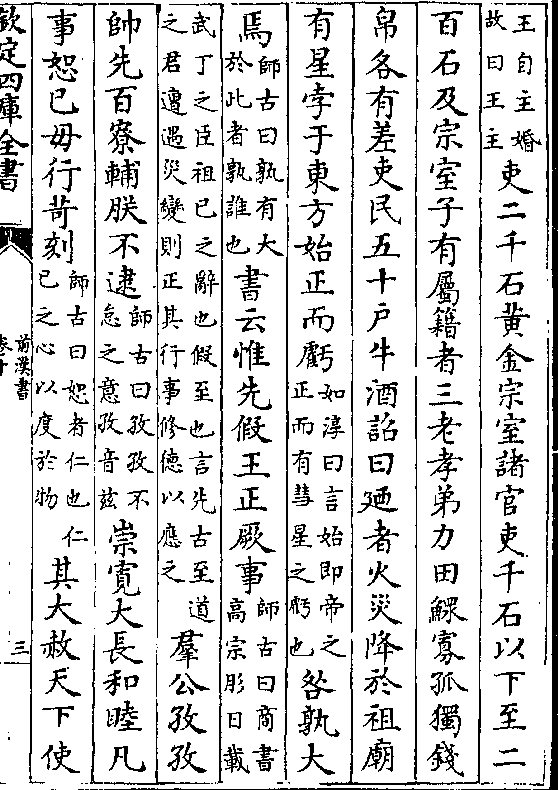 王自主婚
故曰王主
吏二千石黄金宗室諸官吏千石以下至二
百石及宗室子有屬籍者三老孝弟力田鰥寡孤獨錢
帛各有差吏民五十户牛酒詔曰廼者火災降於祖廟
有星孛于東方始正而虧
如淳曰言始即帝之
正而有彗星之虧也
咎孰大
焉
師古曰孰有大
於此者孰誰也
書云惟先假王正厥事
師古曰商書
高宗肜日載
武丁之臣祖已之辭也假至也言先古至道
之君遭遇災變則正其行事修德以應之
羣公孜孜
帥先百寮輔朕不逮
師古曰孜孜不
怠之意孜音兹
崇寛大長和睦凡
事恕已毋行苛刻
師古曰恕者仁也仁
已之心以度於物
其大赦天下使
欽定四庫全書
前漢書
卷十
三